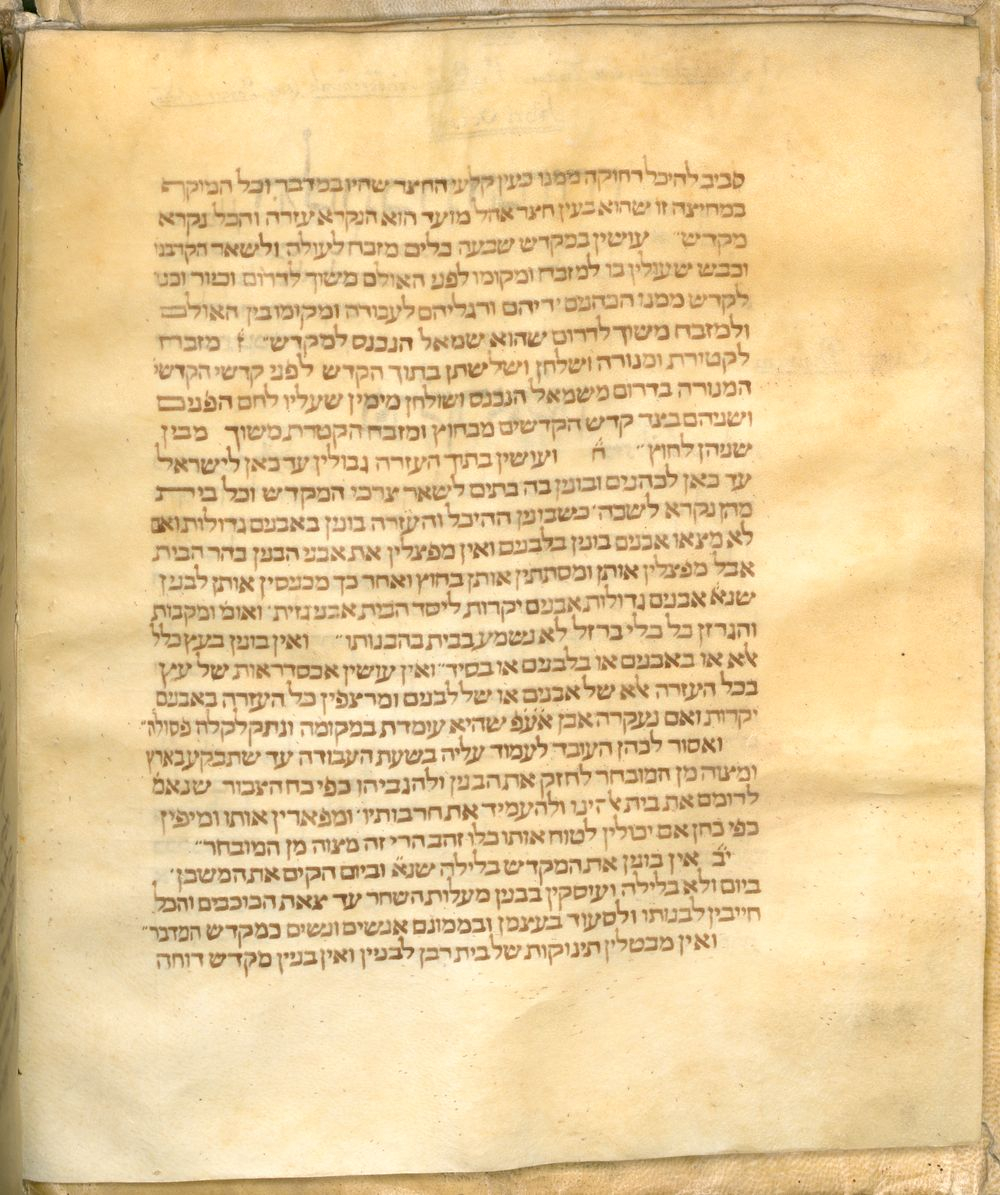 סביב להיכל רחוקה ממנו כעין קלעי החצר שהיו במדבר וכל המוקף
במחיצה זו שהוא כעין חצר אהל מועד הוא הנקרא עזרה והכל נקרא
מקדש״ עושין במקדש שבעה כלים מזבח לעולה ולשאר הקרבנו
וכבש שעולין בו למזבח ומקומו לפני האולם משוך לדרום וכיור וכנו
לקדש ממנו הכהנים ידיהם ורגליהם לעבודה ומקומו בין האולם
ולמזבח משוך לדרום שהוא שמאל הנכנס למקדש״ ז מזבח
לקטורת ומנורה ושלחן ושלשתן בתוך הקדש לפני קדשי הקדשי
המנורה בדרום משמאל הנכנס ושולחן מימין שעליו לחם הפנים
ושניהם בצד קדש הקדשים מבחוץ ומזבח הקטרת משוך מבין
שניהן לחוץ״ ח ועושין בתוך העזרה גבולין עד כאן לישראל
עד כאן לכהנים ובונין בה בתים לשאר צרכי המקדש וכל בית
מהן נקרא לשכה׳ כשבונין ההיכל והעזרה בונין באבנים גדולות ואם
לא מצאו אבנים בונין בלבנים ואין מפצלין את אבני הבנין בהר הבית
אבל מפצלין אותן ומסתתין אותן בחוץ ואחר כך מכניסין אותן לבנין
שנא׳ אבנים גדולות אבנים יקרות ליסד הבית אבני גזית׳ ואומ׳ ומקבות
והגרזן כל כלי ברזל לא נשמע בבית בהבנותו״ ואין בונין בעץ כלל
אלא או באבנים או בלבנים או בסיד״ ואין עושין אכסדראות של עץ
בכל העזרה אלא של אבנים או של לבנים ומרצפין כל העזרה באבנים
יקרות ואם נעקרה אבן אע״פ שהיא עומדת במקומה ונתקלקלה פסולה״
ואסור לכהן העובד לעמוד עליה בשעת העבודה עד שתבקע בארץ
ומצוה מן המובחר לחזק את הבנין ולהגביהן כפי כח הצבור שנאמ׳
לרומם את בית אלהינו ולהעמיד את חרבותיו׳ ומפארין אותו ומיפין
כפי כחן אם יכולין לטוח אותו כלו זהב הרי זה מצוה מן המובחר״
י״ב אין בונין את המקדש בלילה שנא׳ וביום הקים את המשכן׳
ביום ולא בלילה ועוסקין בבנין מעלות השחר עד צאת הכוכבים והכל
חייבין לבנותו ולסעוד בעצמן ובממונם אנשים ונשים כמקדש המדבר״
ואין מבטלין תינוקות של בית רבן לבניין ואין בניין מקדש דוחה